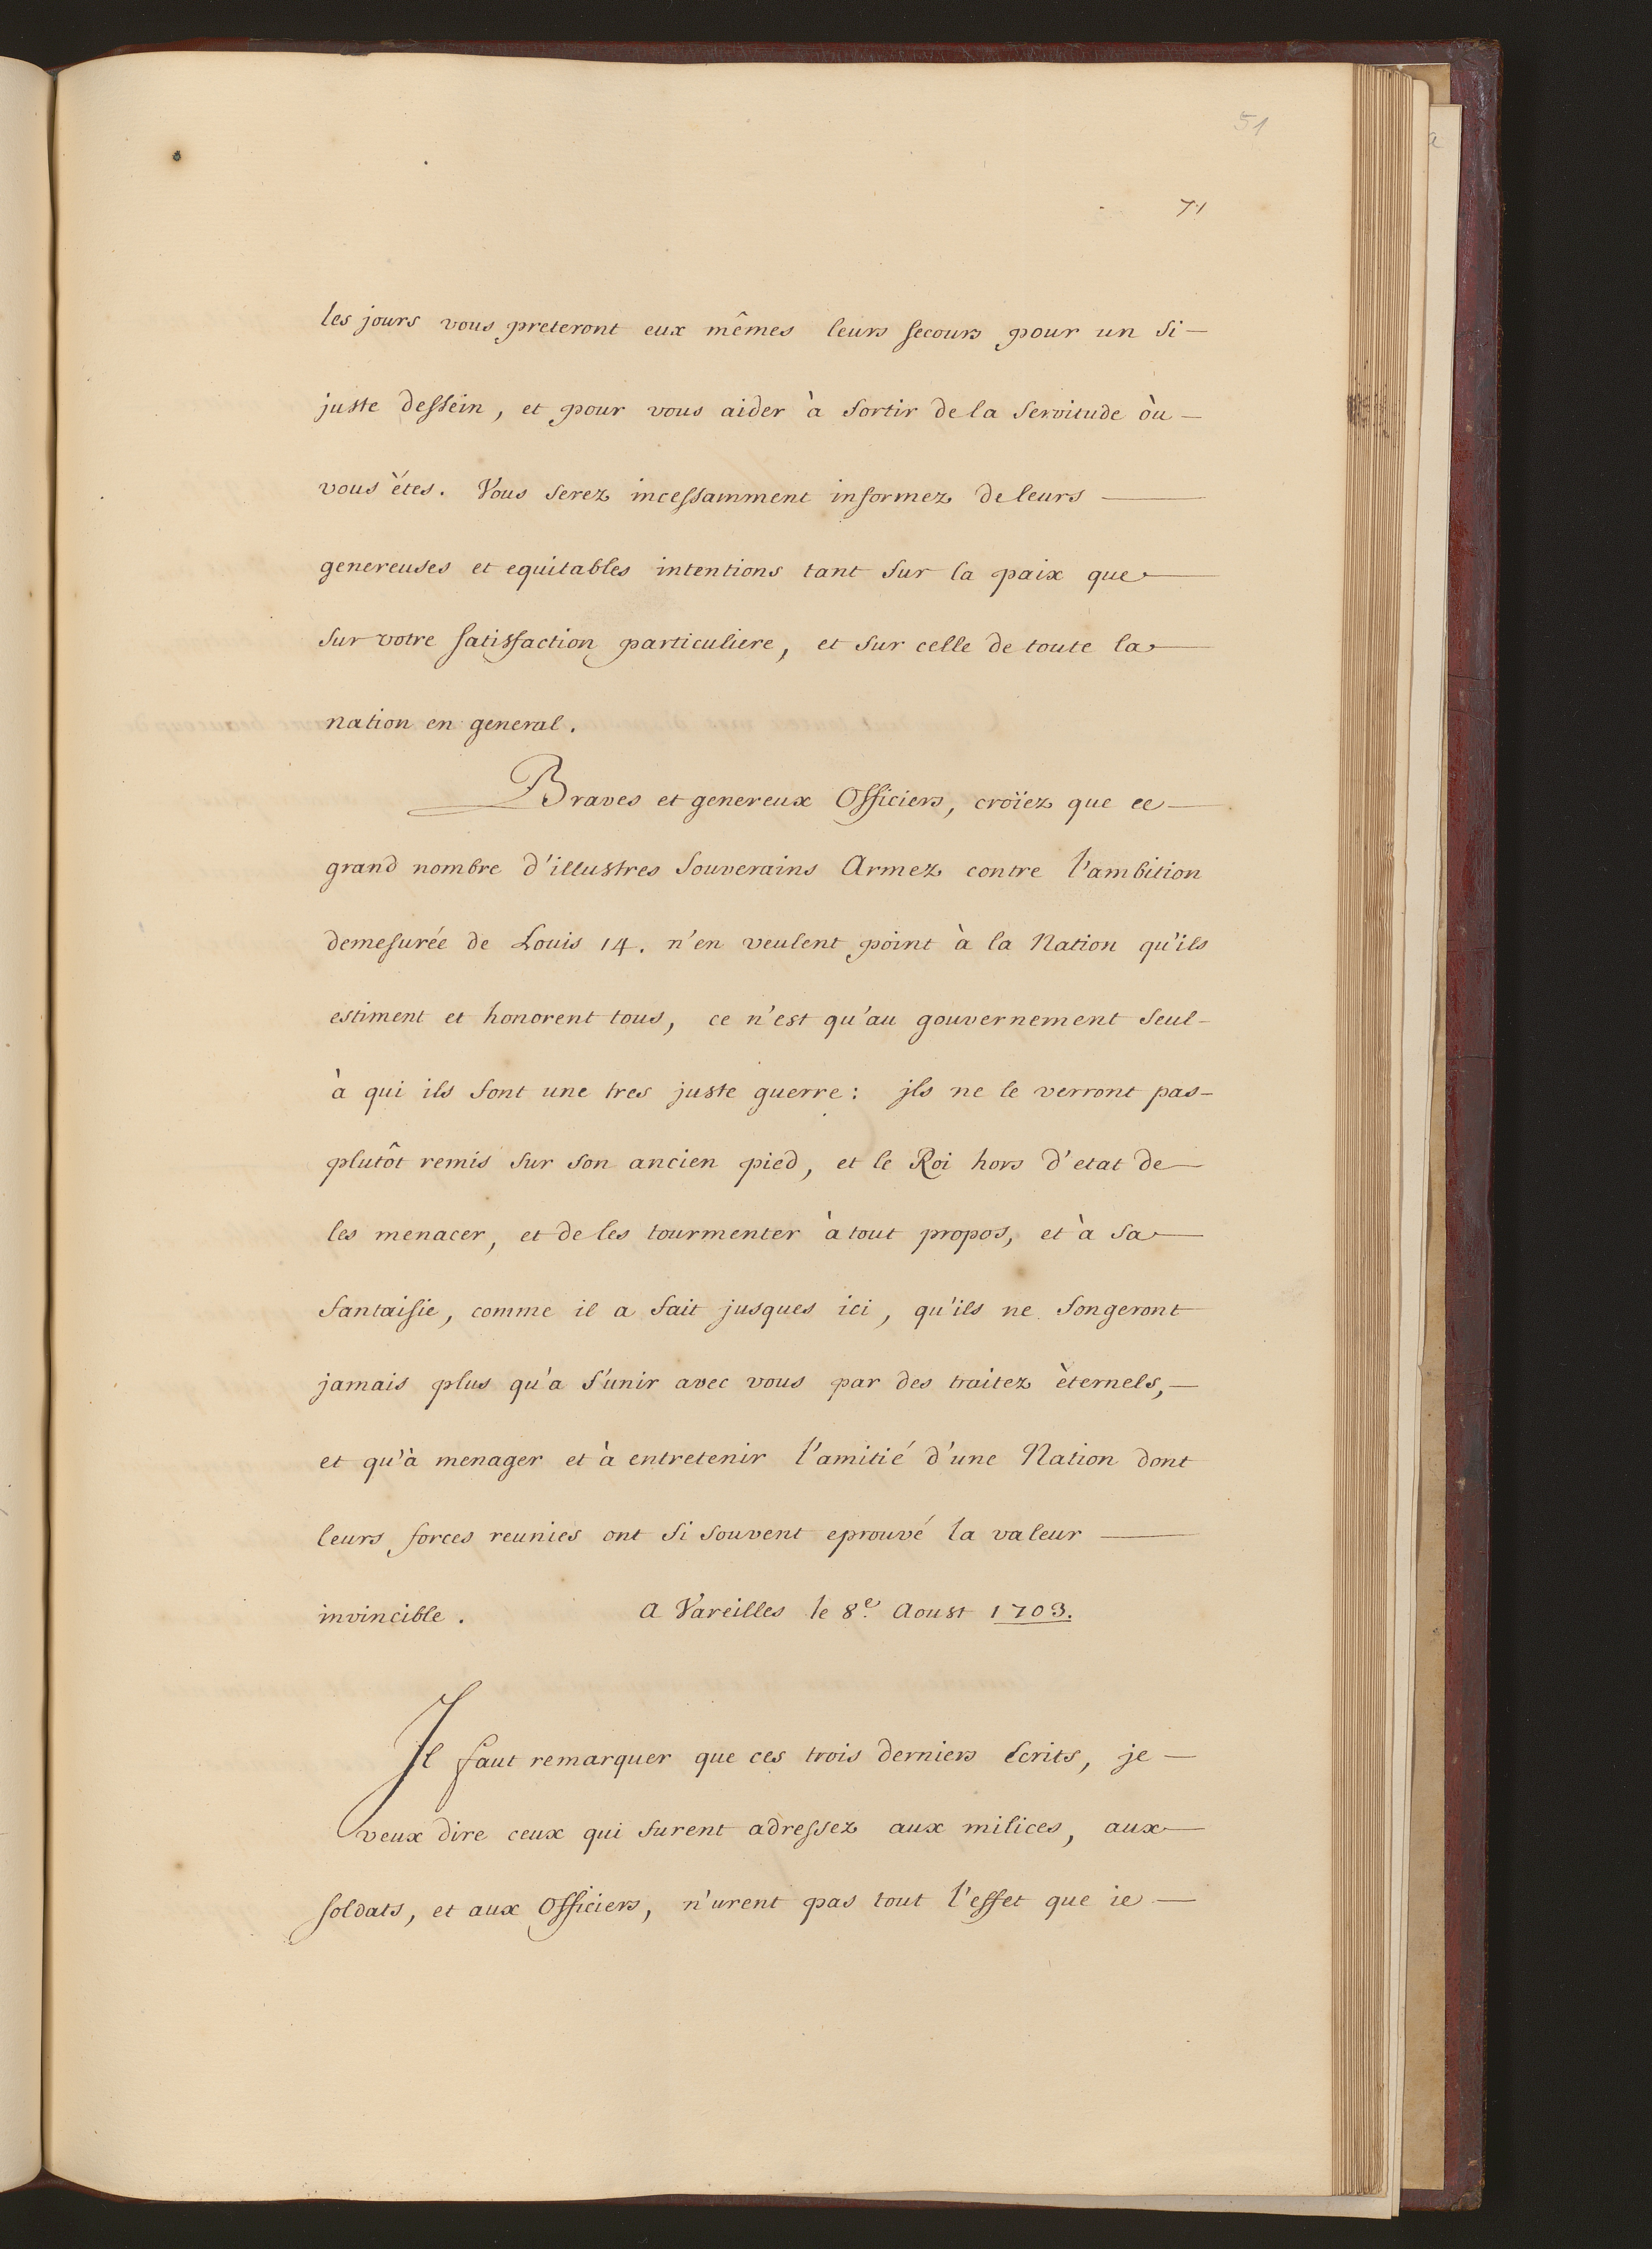 51
71
les jours vous preteront eux mêmes leurs secours pour un si —
juste dessein, et pour vous aider à sortir de la servitude òu —
vous étes. Vous serez incessamment informez de leurs —
genereuses et equitables intentions tant sur la paix que —
sur votre satisfaction particuliere, et sur celle de toute la —
nation en general.
Braves et genereux Officiers, croïez que ce —
grand nombre d'illustres souverains Armez contre l'ambition
demesurée de Louis 14. n'en veulent point à la Nation qu'ils
estiment et honorent tous, ce n'est qu'au gouvernement seul -
à qui ils font une tres juste guerre : jls ne le verront pas -
plutôt remis sur son ancien pied, et le Roi hors d'etat de —
les menacer, et de les tourmenter à tout propos, et à sa —
fantaisie, comme il a fait jusques ici, qu'ils ne songeront
jamais plus qu'a s'unir avec vous par des traitez èternels, —
et qu'à menager et à entretenir l'amitié d'une Nation dont
leurs forces reunies ont si souvent eprouvé la valeur —
invincible. A Vareilles le 8.e Aoust 1703.
Il faut remarquer que ces trois derniers Ecrits, je —
veux dire ceux qui furent adressez aux milices, aux —
soldats, et aux Officiers, n'urent pas tout l'effet que ie —